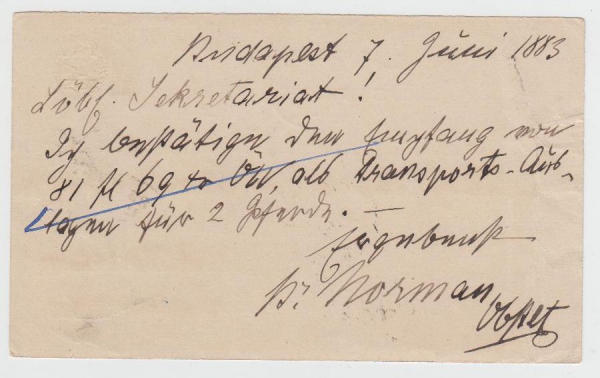 Budapest 7. Juni 1883
Löbl. Sekretariat!
Ich bestätige den Empfang von
81 fl 69 xr ÖW, als Transports-Aus-
lagen für 2 Pferde. —
Ergebenst
Norman
Obstlt